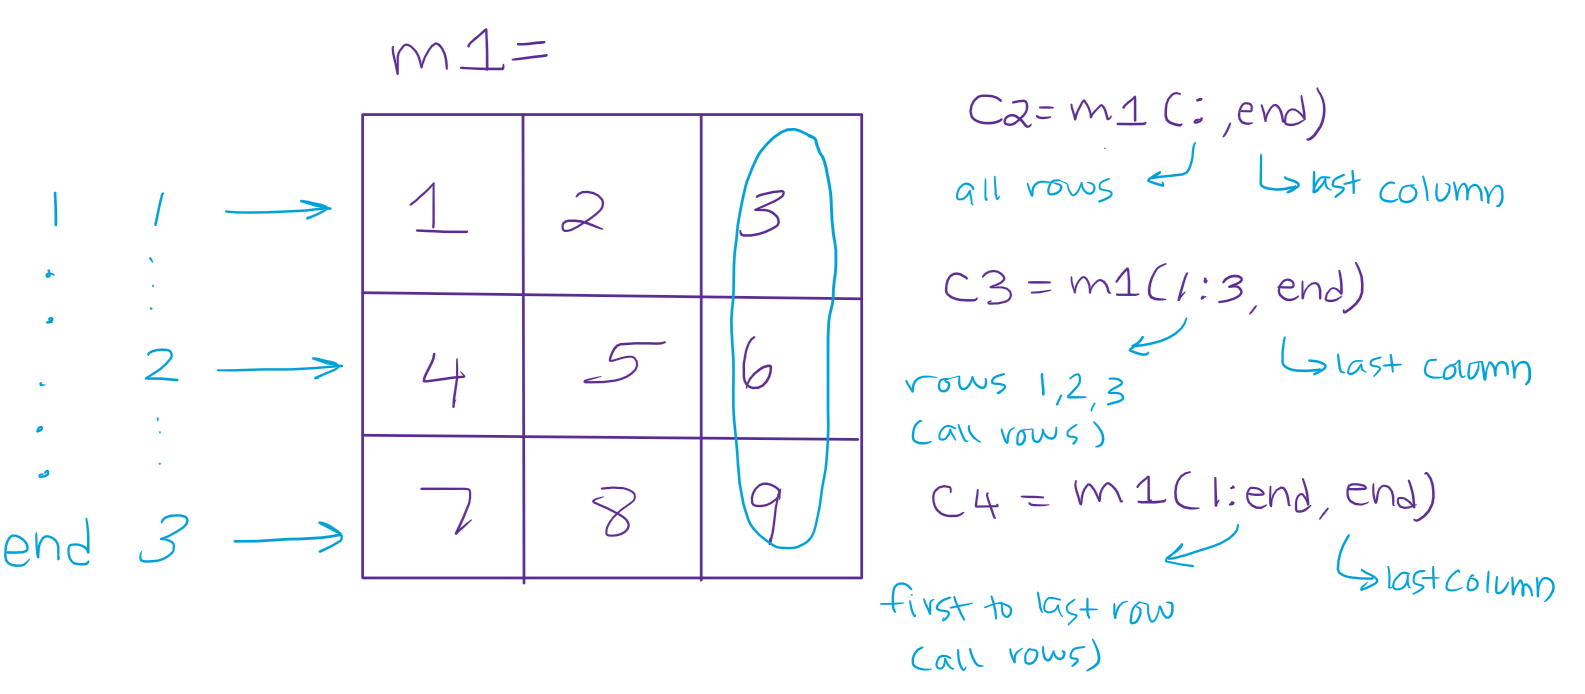 m1=
1 1 → 1 2 3
2 → 4 5 6
end 3 → 7 8 9
C2= m1 (: ,end)
all rows
last column
C3 = m1(1:3, end)
rows 1,2,3
(all rows)
last column
C4 = m1(1:end, end)
first to last row
(all rows)
last column